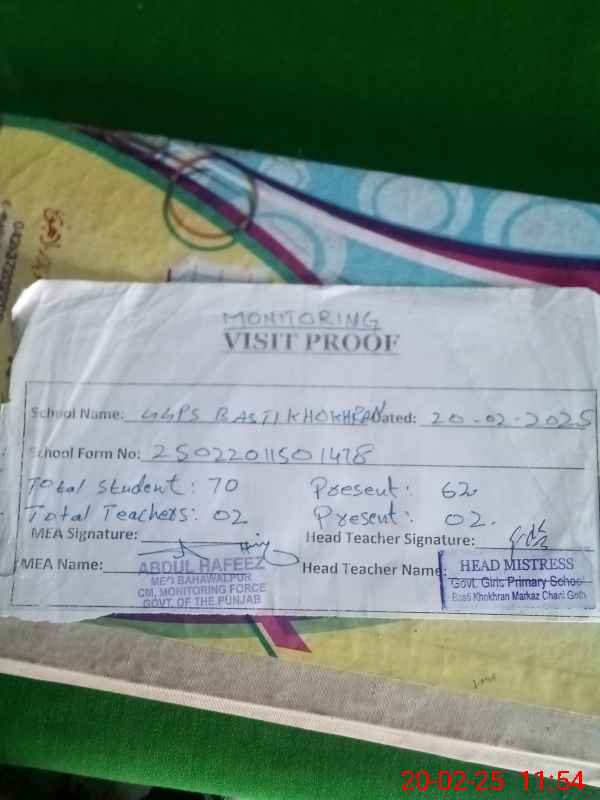 MONITORING
VISIT PROOF
School Name: GGPS BASTI KHOKHRAN Dated: 20-02-2025
School Form No: 25022011501478
Total Student: 70 Present: 62
Total Teachers: 02 Present: 02.
MEA Signature: Head Teacher Signature:
MEA Name: ABDUL HAFEEZ Head Teacher Name: HEAD MISTRESS
MEO BAHAWALPUR Govt. Girls Primary School
CM, MONITORING FORCE Basti Khokhran Markaz Chani Goth
GOVT. OF THE PUNJAB
20-02-25 11:54